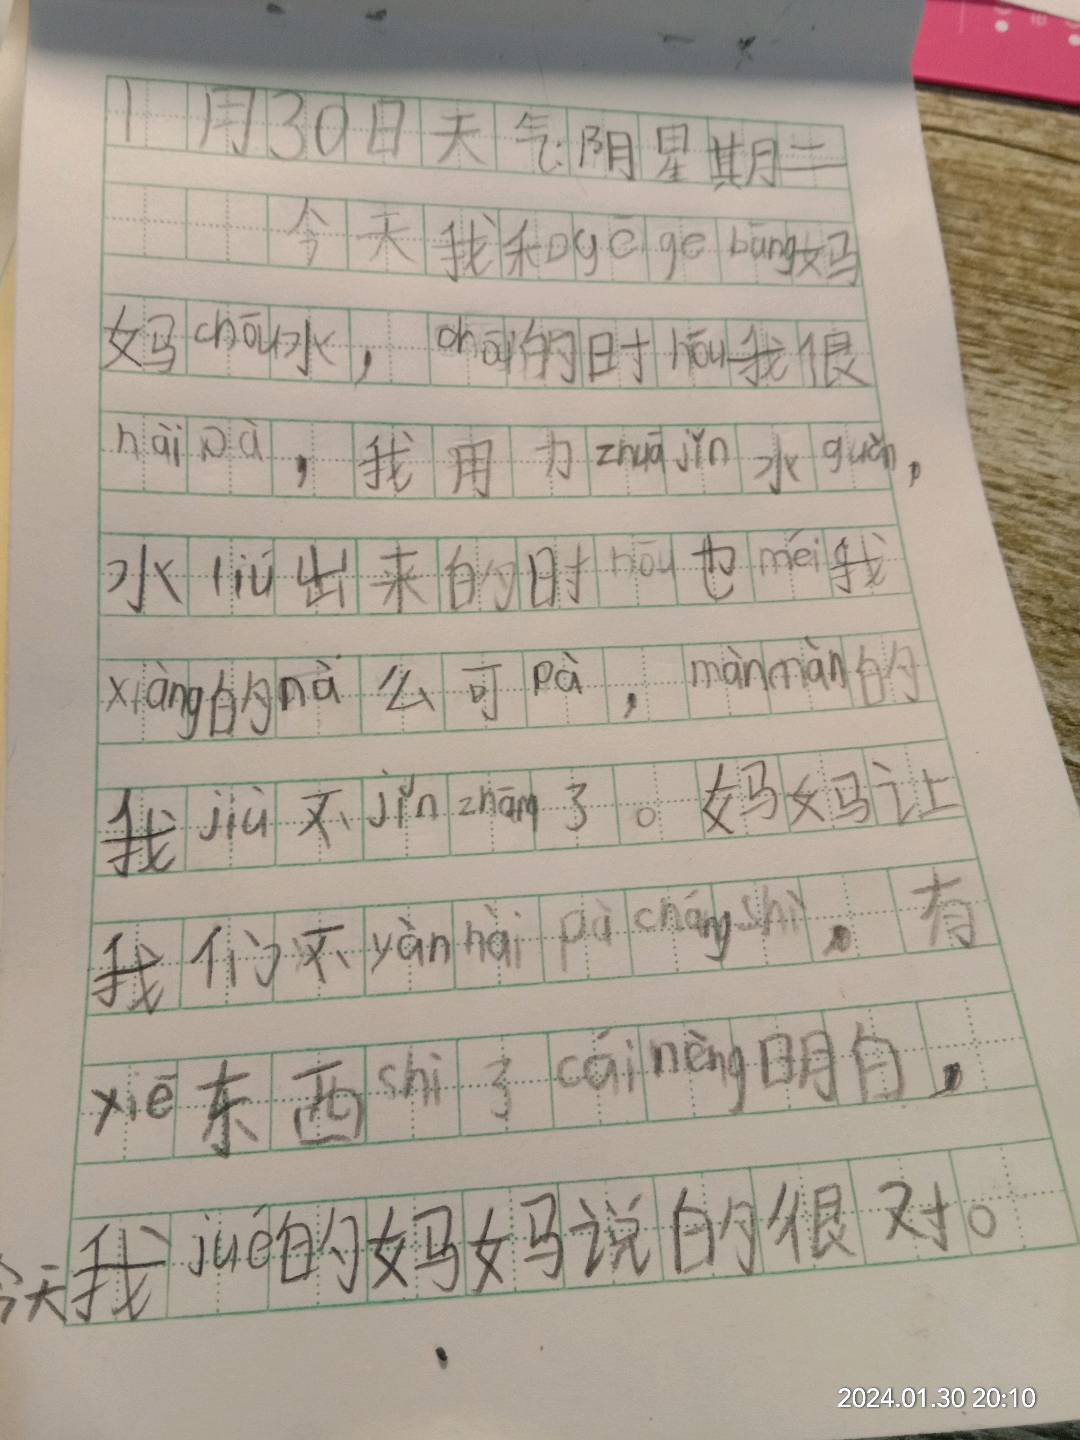 1月30日天气:阴星期二
今天我和DyēgebāngMom妈
妈chōu水，chōu的时hōu我很
hàipà，我用力zhuājǐn水guǎn，
水liú出来的时hōu也méi我
xiàng的nà么可pà，mànmàn的
我jiù不jǐnzhāng了。妈妈让
我们不yànhàipàchángshì，有
xiē东西shì了cáinèng明白，
今天我jué的妈妈说的很对。
2024.01.30 20:10